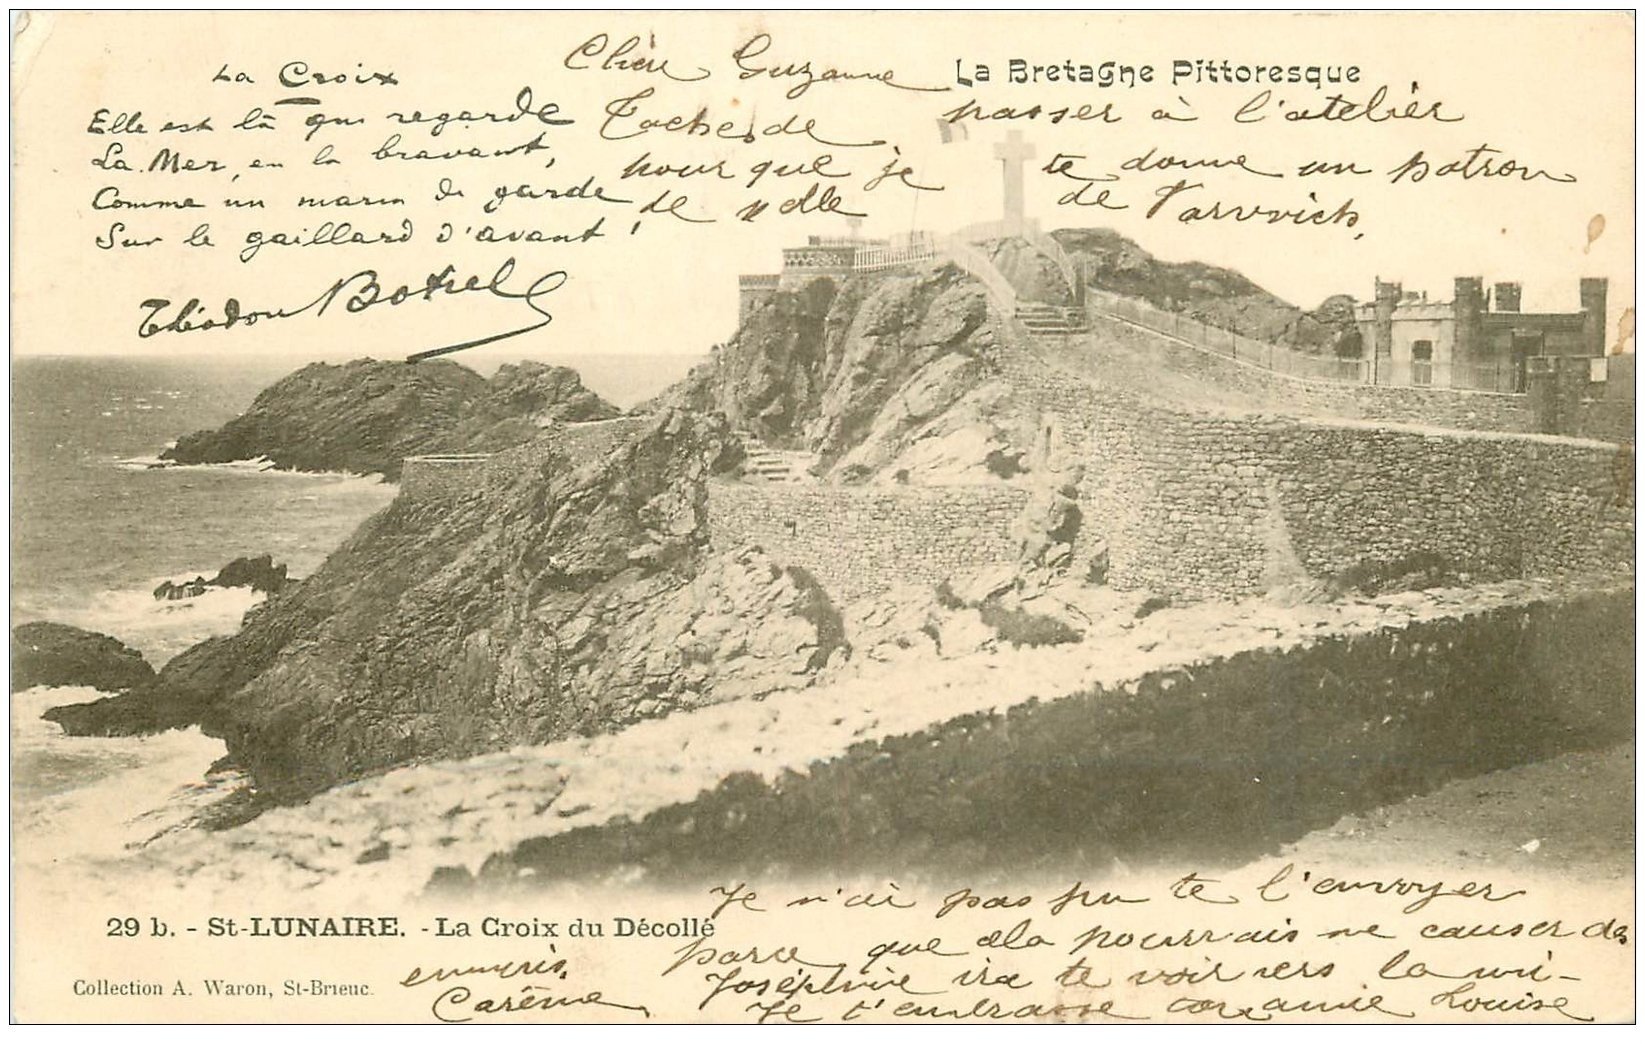 La Bretagne Pittoresque
La Croix
Elle est là qui regarde
La Mer, en la bravant,
Comme un marin de garde
Sur le gaillard d'avant !
Théodore Botrel
Chère Suzanne
Tache de passer à l'atelier
pour que je te donne un patron
de de Varwich,
29 b. - St-LUNAIRE. - La Croix du Décollé
Collection A. Waron, St-Brieuc.
Je n'ai pas pu te l'envoyer
parce que cela pourrais me causer des
ennuis. Joséphine ira te voir vers la mi-
Carême Je t'embrasse ton amie Louise